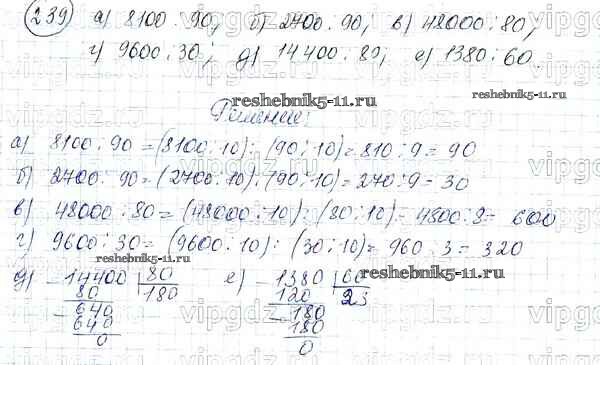 239 а) 8100:90, б) 2700:90, в) 48000:80,
г) 9600:30; д) 14400:80, е) 1380:60.
reshebnik5-11.ru
Решение:
а) 8100:90=(8100:10):(90:10)=810:9=90
б) 2700:90=(2700:10):(90:10)=270:9=30
в) 48000:80=(48000:10):(80:10)=4800:8=600
г) 9600:30=(9600:10):(30:10)=960:3=320
reshebnik5-11.ru
д) -14400 |80 е) -1380 |60
80 180 120 23
-640 -180
640 180
0 0
reshebnik5-11.ru
vipgdz.ru